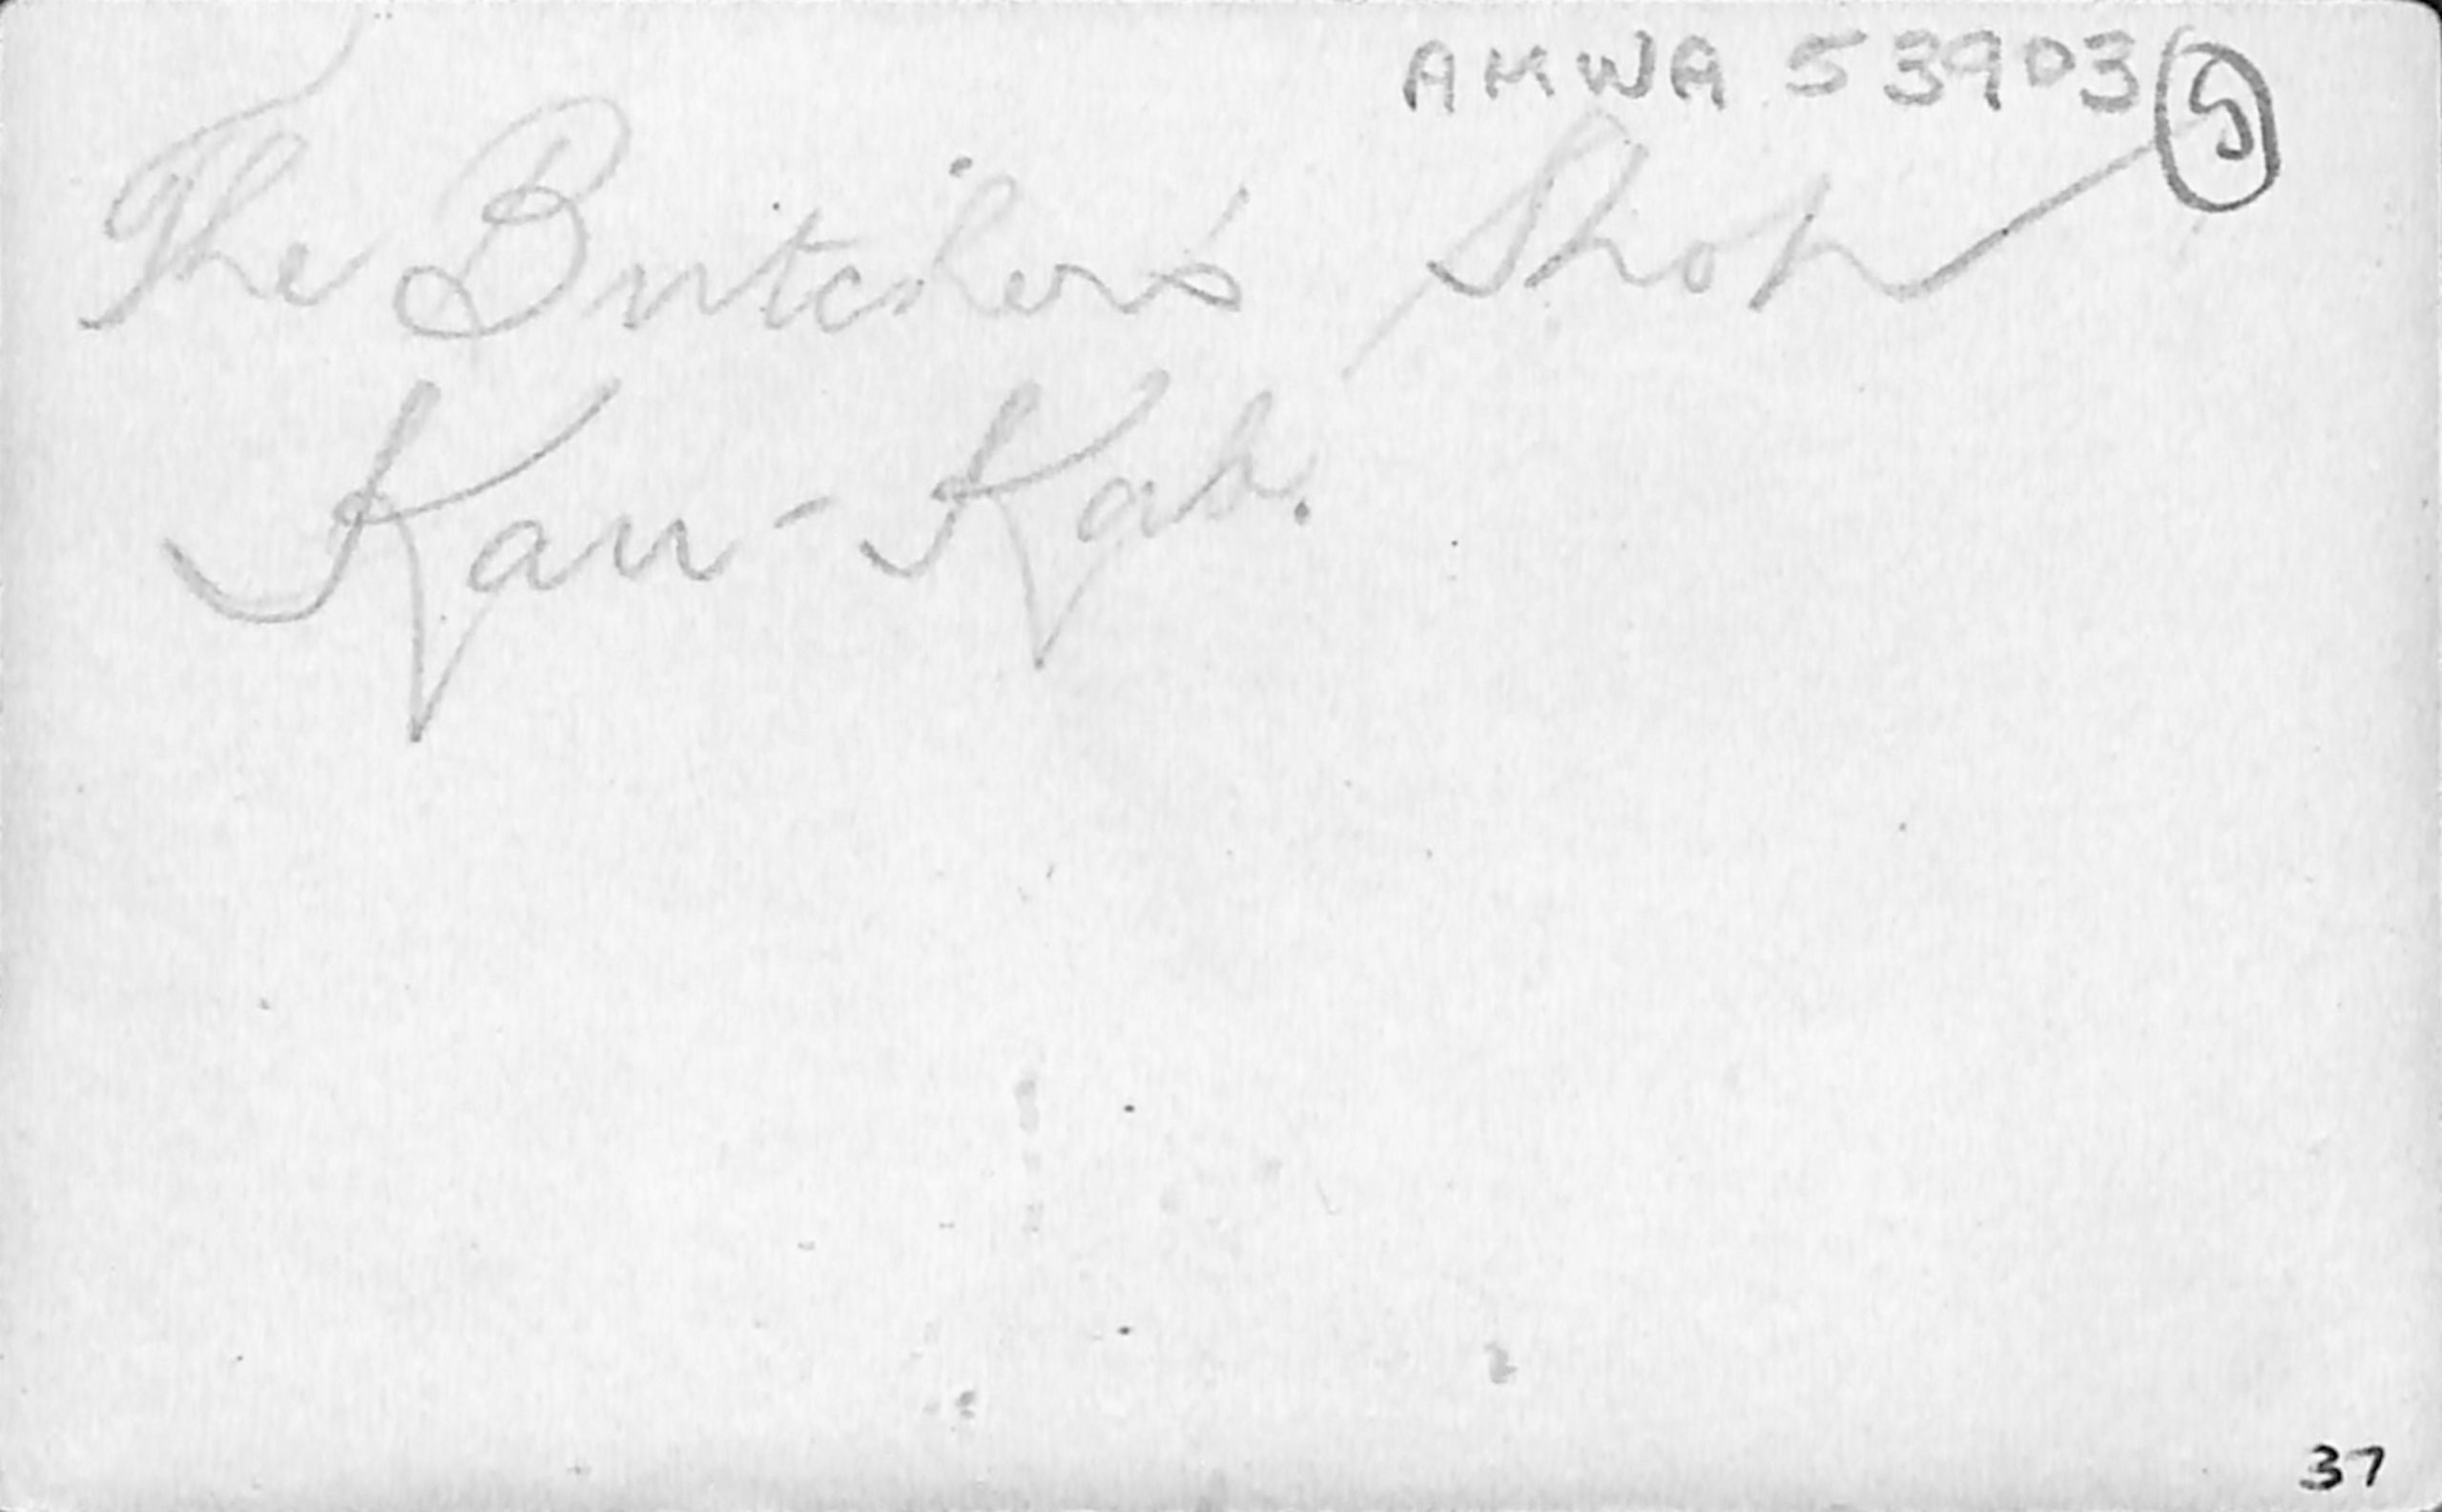 AMWA 53903 5
The Butcher's Shop
Kau-Kab.
37